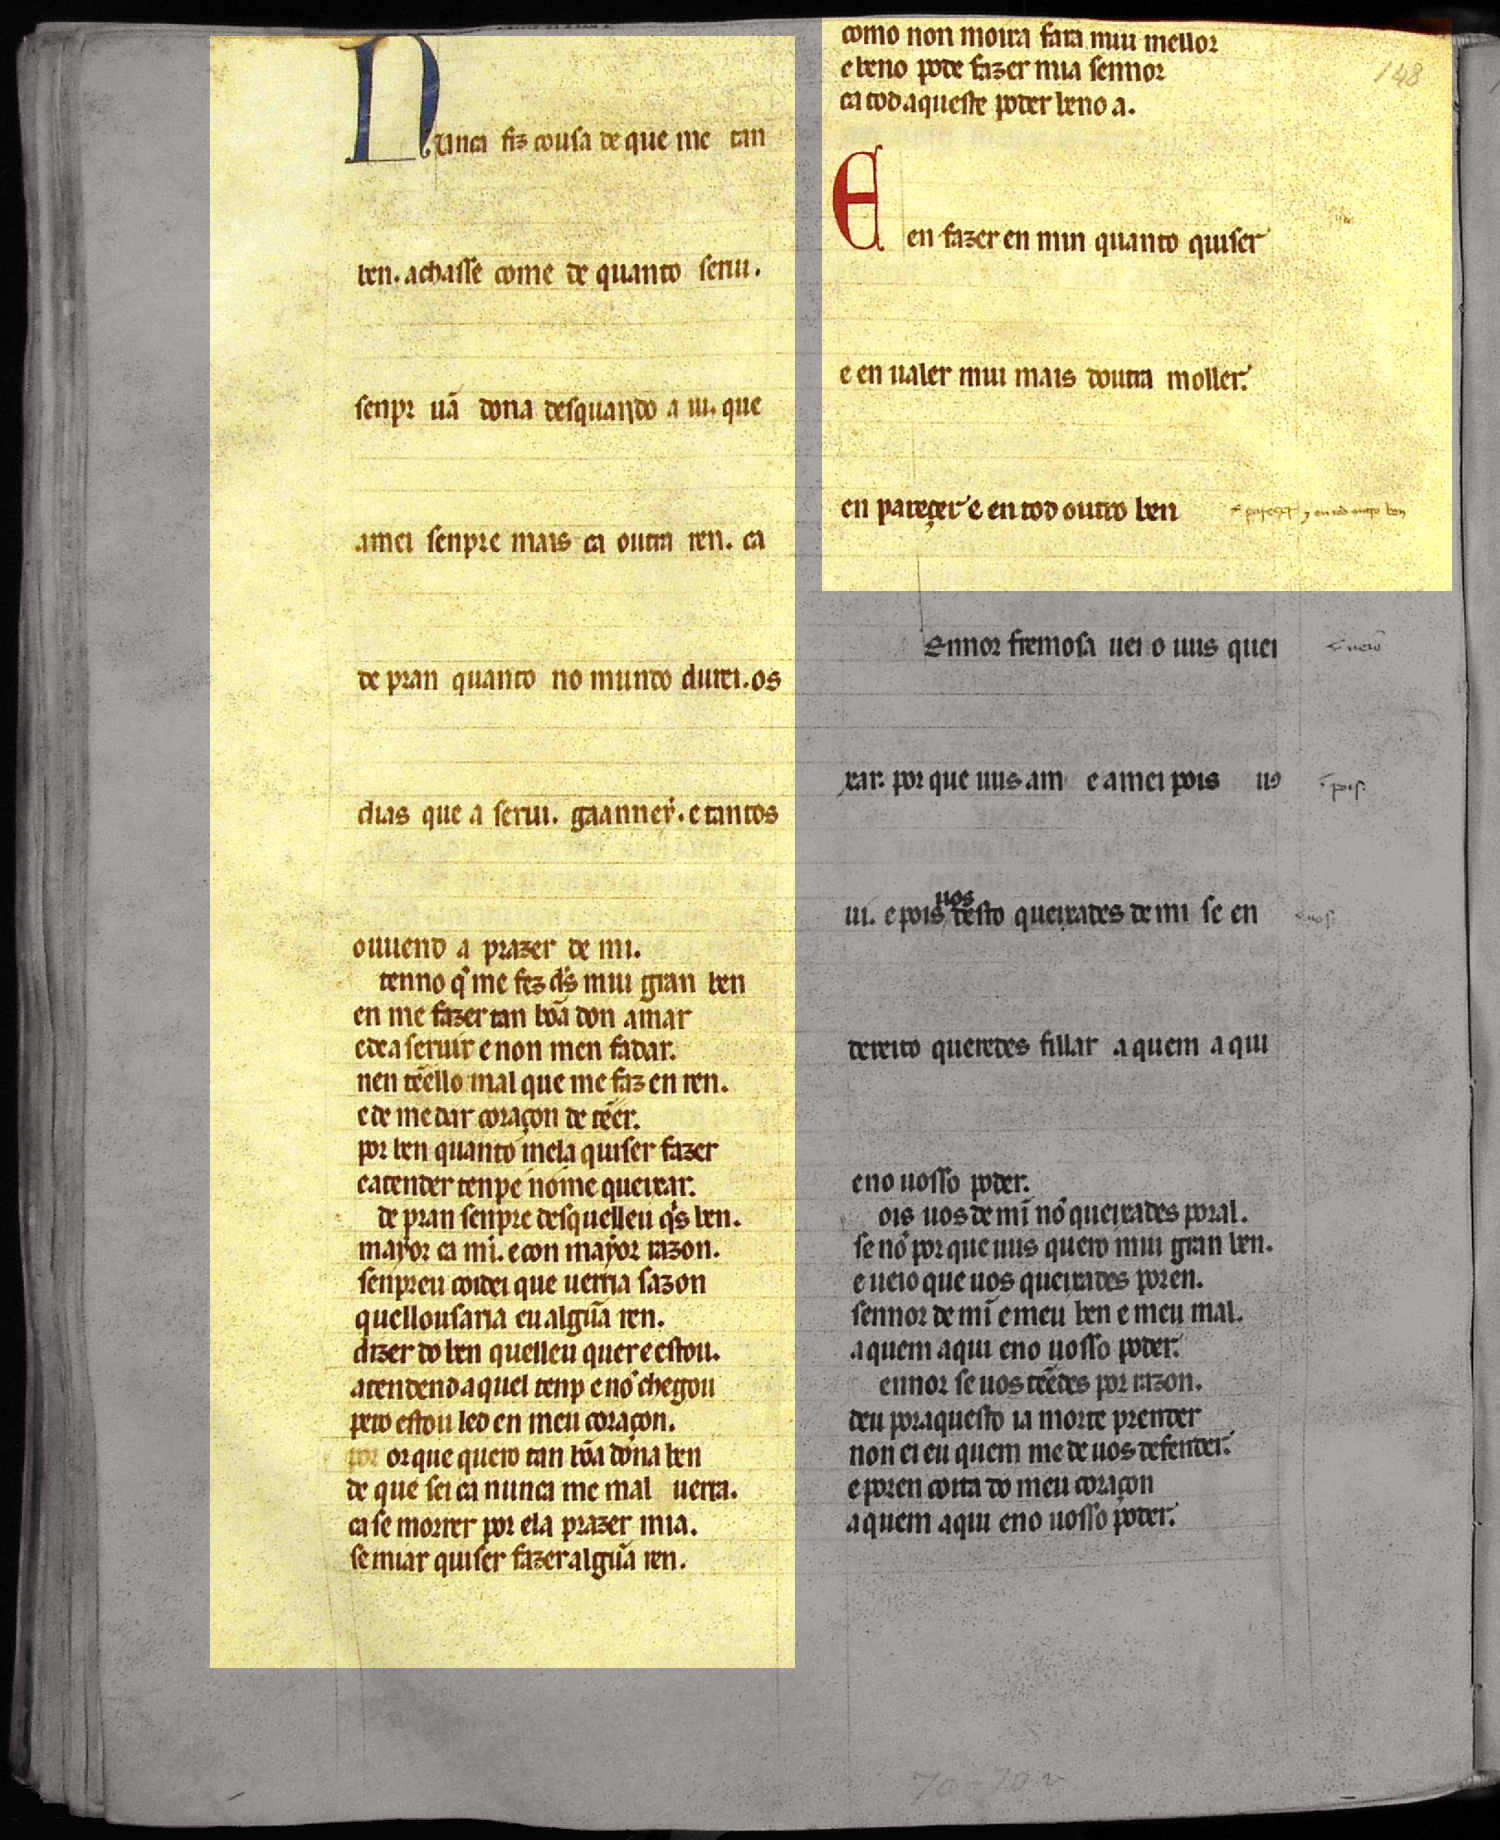 Nunca fiz cousa de que me tan
ben. achasse come de quanto serui.
senpr uã dona desquando a ui. que
amei senpre mais ca outra ren. ca
de pran quanto no mundo durei. os
dias que a serui. gaanney. e tantos
ouuend a prazer de mi.
tenno q̃ me fez d̃s mui gran ben
en me fazer tan bõa don amar
edea seruir e non men fadar.
nen tẽello mal que me faz en ren.
e de me dar coraçon de tẽer.
por ben quanto mela quiser fazer
eatender tenpe nõme queixar.
de pran senpre desquelleu q̃s ben.
mayor ca mi. e con mayor razon.
senpreu coidei que uerria sazon
quellousaria eu algũa ren.
dizer do ben quelleu quer e estou.
atendend aquel tenp e nõ chegou
pero estou led en meu coraçon.
por orque quero tan bõa dona ben
de que sei ca nunca me mal uerra.
ca se morrer por ela prazer mia.
se miar quiser fazer algũa ren.
como non moira fara mui mellor
e beno pode fazer mia sennor
ca tod aqueste poder beno a.
148
E en fazer en min quanto quiser
e en ualer mui mais doutra moller.
en pareçer e en tod outro ben
e pareçer y en tod outro ben
Ennor fremosa uei o uus quei
e ueio
xar. por que uus am e amei pois uꝯ
pois
ui. e pois uos desto queixades de mi se en
uos
dereito queredes fillar a quem aqui
eno uosso poder.
ois uos de mĩ nõ queixades poral.
se nõ por que uus quero mui gran ben.
e ueio que uos queixades poren.
sennor de mĩ e meu ben e meu mal.
a quem aqui eno uosso poder.
ennor se uos tẽedes por razon.
deu poraquesto ia morte prender
non ei eu quem me de uos defender.
e poren coita do meu coraçon
a quem aqui eno uosso poder.
70-70v